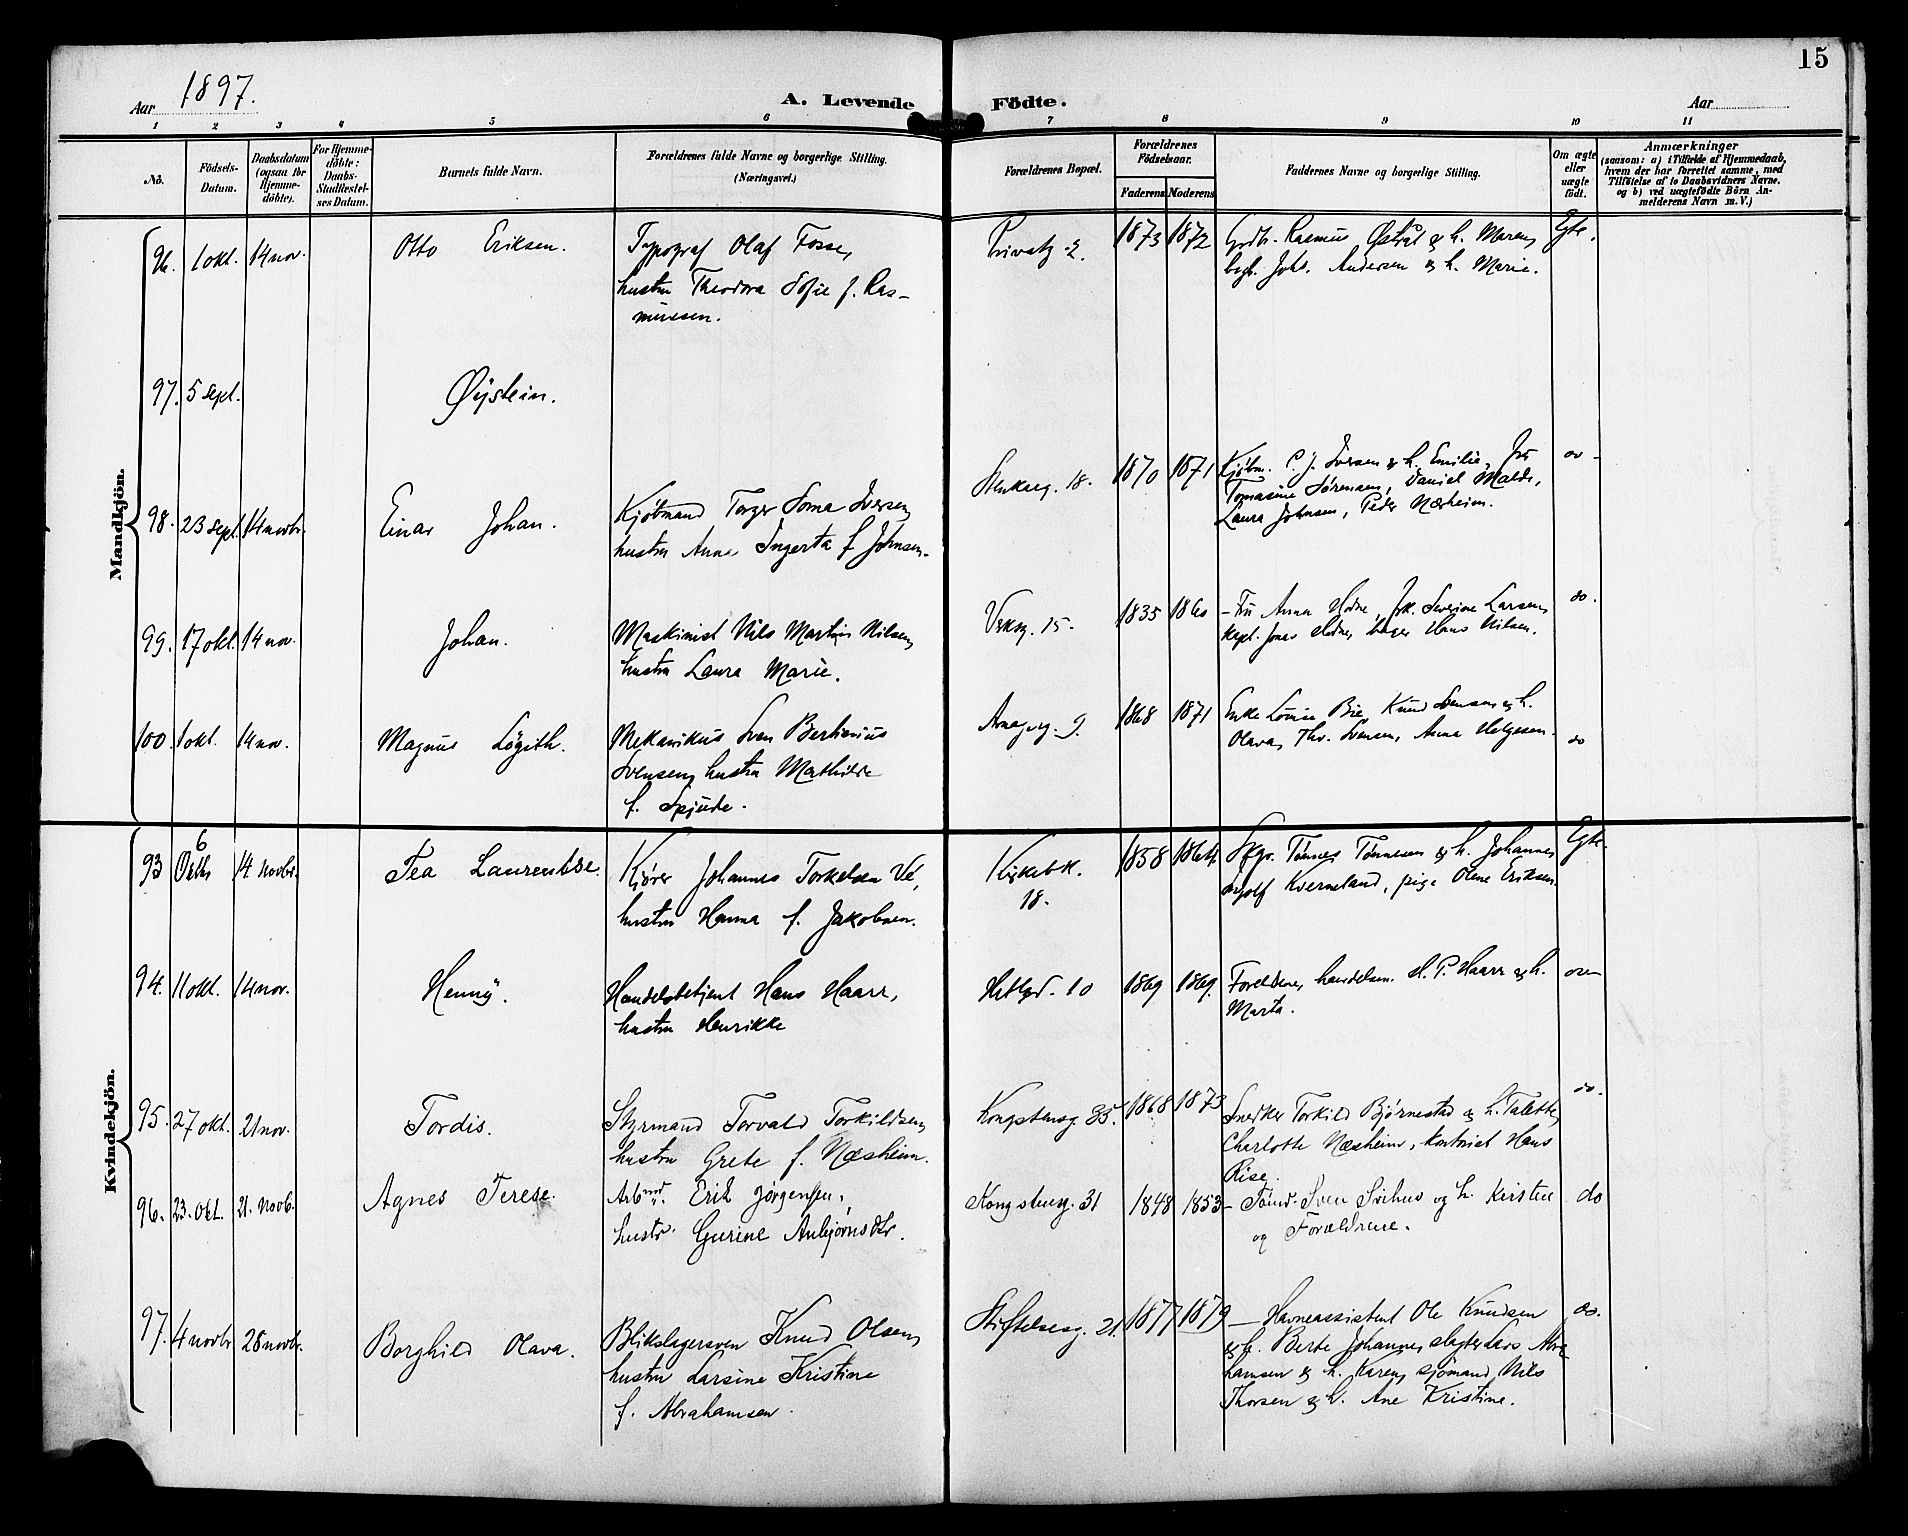 15
Aar 1897.
A. Levende Födte.
Aar
1 2 3 4 5 6 7 8 9 10 11
No.
Födsels-Datum.
Daabsdatum (ogsaa for Hjemme-döbte).
For Hjemme-döbte: Daabs-Stadfæstel-ses Datum.
Barnets fulde Navn.
Forældrenes fulde Navne og borgerlige Stilling.
(Næringsvei.)
Forældrenes Bopæl.
Forældrenes Födselsaar.
Faderens
Moderens
Faddernes Navne og borgerlige Stilling.
Om ægte eller uægte födt.
Anmærkninger
(saasom: a) i Tilfælde af Hjemmedaab,
hvem der har forrettet samme, med
Tilföielse af to Daabsvidners Navne,
og b) ved uægtefödte Börn An-
melderens Navn m. V.)
Mandkjön.
96. 1 okt. 14 nov. Otto Eriksen. Typograf Olaf Fosse, Privatg. 2. 1873 1872 Rasmus & h. Maren, Egte.
hustru Theodora Sofie f. Ras- Johs. Andersen & h. Marie.
mussen.
97. 5 sept. Øystein.
98. 23 sept. 14 novbr. Einar Johan. Kjøbmand Torger Soma Iversen, 18. 1870 1871 Kjøbm. P. J. Iversen & h. Emilie,
hustru Anna Ingerta f. Johnsen. Tomasine Sørensen, Daniel Malde,
Laura Johnsen, Peder Nærheim.
99. 17 okt. 14 nov. Johan. Maskinist Nils Martin Nilsen, Verksg. 15. 1835 1860 Fru Anna Hodne, Severine Larsen, do.
hustru Laura Marie. kapt. Jonas Hodne, Hans Nilsen.
100. 1 okt. 14 nov. Magnus Løgith. Mekanikus Sven Bertinius 9. 1868 1871 Enke Lovise Bie, Knud Svensen & h.
Svensen, hustru Mathilde Olava, Thv. Svensen, Anna Helgesen. do
f. Spjude.
Kvindekjön.
93 6 Oktbr 14 novbr. Tea Laurentse. Kjører Johannes Torkelsen Ve, Kirkebk. 18. 1858 1864 Tønnes Tønnesen & h. Johanne, Egte.
hustru Hanna f. Jakobsen. Kverneland, pige Oline Eriksen.
94. 11 okt. 14 nov. Henny. Handelsbetjent Hans Haarr, Hetlgd. 10 1869 1869. Forældrene, handelsm. H. P. Haarr & h.
hustru Henrikke Marta.
95. 27 okt. 21 nov. Tordis. Styrmand Torvald Torkildsen, Kongstensg. 35. 1868 1873 Snedker Torkild Bjørnestad & h. Talette, do.
hustru Grete f. Næsheim. Charlotte Næsheim, kontorist Hans
Rise.
96. 23. okt. 21. novb. Agnes Terese. Arbmd. Erik Jørgensen, Kongstensg. 31 1848 1853 Sven Svihus og h. Kirsten do
hustr. Gurine Anbjørnsdtr. og Forældrene.
97. 4 novbr. 28 novbr. Borghild Olava. Blikslagersven Knud Olsen, Stiftelsesg. 21. 1877 1879 Havneassistent Ole Knudsen do.
hustru Larsine Kristine & h. Berte Johanne, slagter Lars Abra-
f. Abrahamsen. hamsen & h. Karen, sjømand Nils
Thorsen & h. Ane Kristine.